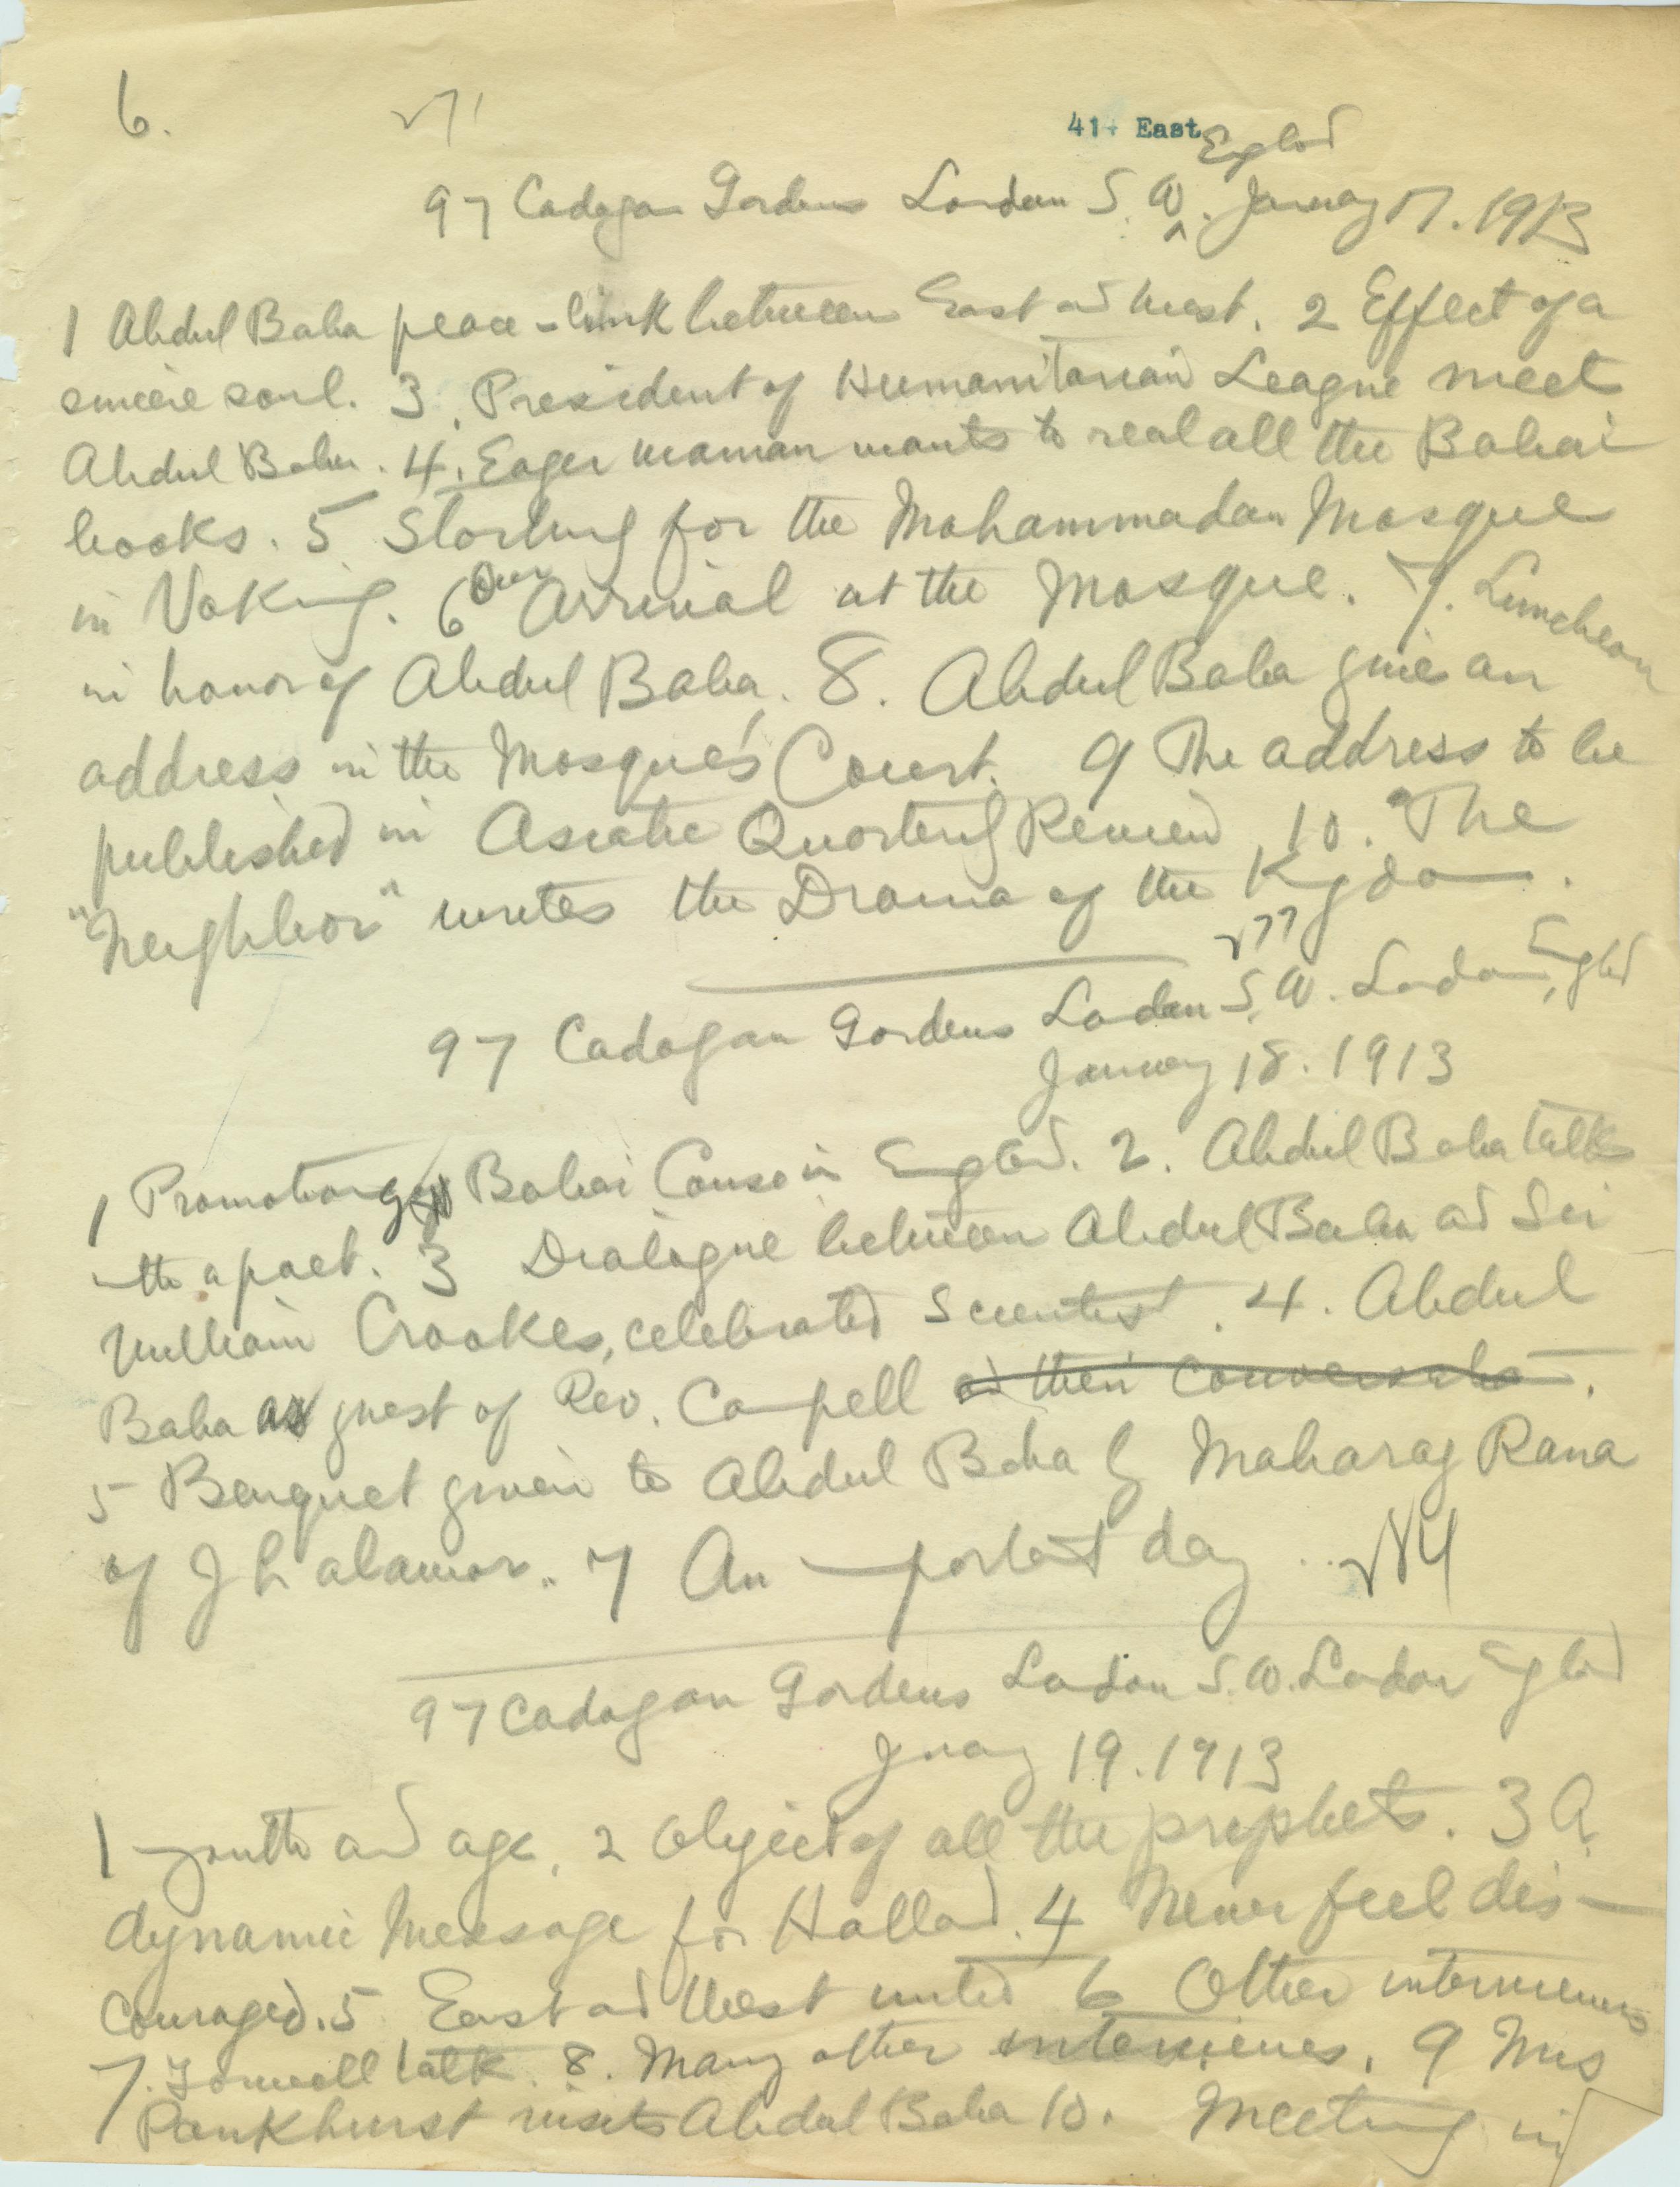 6.
414 East
Englad
97 Cadogan Gardens London S. W. January 17. 1913
1 Abdul Baha peace-link between East and West. 2 Effect of a
sincere soul. 3. President of Humanitarian League meet
Abdul Baha. 4. Eager woman wants to read all the Bahai
books. 5 Starting for the Mohammadan Mosque
in Voking. 6 Our Arrival at the Mosque. 7. Luncheon
in honor of Abdul Baha. 8. Abdul Baha give an
address in the Mosque's Court. 9 The address to be
published in Asiatic Quarterly Review 10. The
"Neighbor" writes the Drama of the Kgdom.
77
97 Cadogan Gardens London S. W. London, Engld
January 18. 1913
1 Promotion of Bahai Cause in England. 2. Abdul Baha talks
with a poet. 3 Dialogue between Abdul Baha and Sir
William Crookes, celebrated Scientist. 4. Abdul
Baha as guest of Rev. Campell and their conversation.
5 Banquet given to Abdul Baha by Maharaj Rana
of Jhalawar. 7 An important day 84
97 Cadogan Gardens London S. W. London England
January 19. 1913
1 youth and age. 2 Object of all the prophets. 3 A
dynamic Message for Holland. 4 Never feel dis-
couraged. 5 East and West united 6 Other interviews
7. Farewell talk. 8. Many other interviews. 9 Mrs
Pankhurst visits Abdul Baha 10. Meeting in